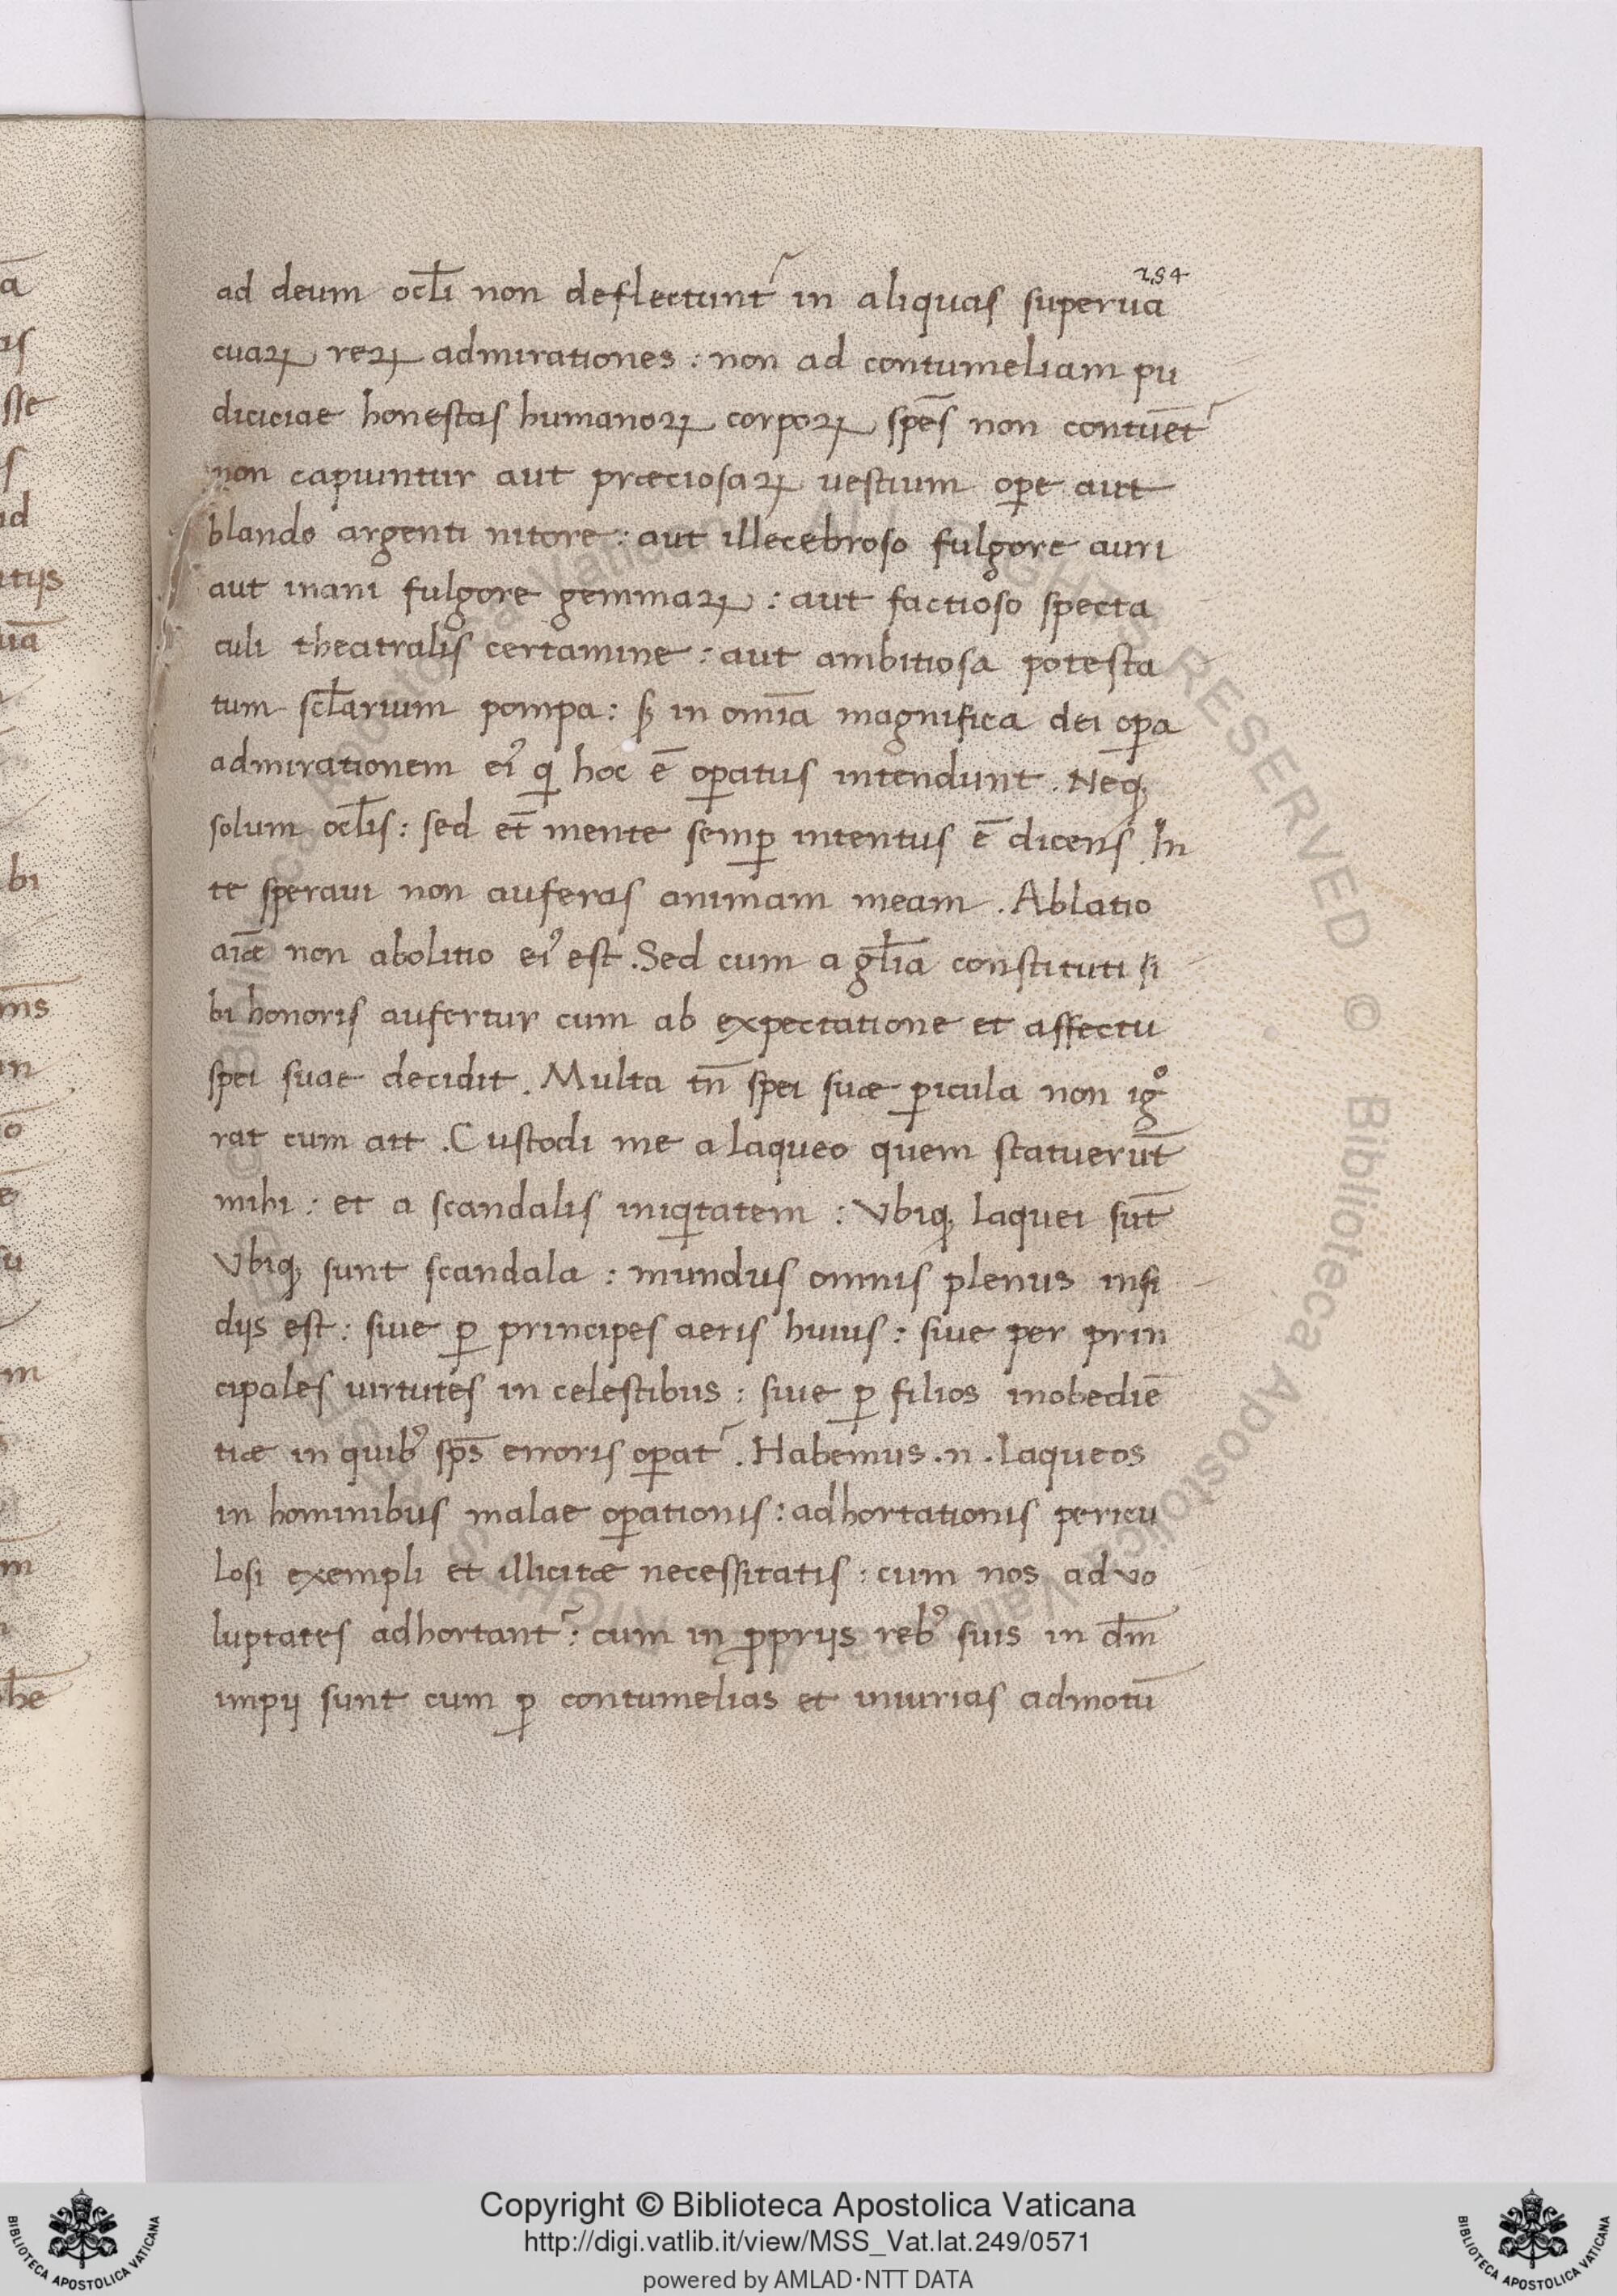 284
ad deum ocl̄i non deflectunt᷑ in aliquas superua
cuaꝝ reꝝ admirationes : non ad contumeliam pu
diciciae honestas humanoꝝ corpoꝝ spēs non contuēt᷑
non capiuntur aut præciosaꝝ uestium oꝑe aut
blando argenti nitore : aut illecebroso fulgore auri
aut inani fulgore gemmaꝝ : aut factioso specta
culi theatralis certamine : aut ambitiosa potesta
tum scl̄arium pompa : sꝫ in omīa magnifica dei oꝑa
admirationem eiꝰ qͥ hoc ē oꝑatus intendunt . Neqꝫ
solum ocl̄is : sed et̄ mente semꝑ intentus ē dicens In
te speraui non auferas animam meam . Ablatio
aīæ non abolitio eiꝰ est . Sed cum a gl̄ia constituti si
bi honoris aufertur cum ab expectatione et affectu
spei suae decidit . Multa tn̄ spei suæ ꝑicula non igͦ
rat cum ait . Custodi me a laqueo quem statuerūt
mihi : et a scandalis iniqͥtatem : Vbiqꝫ laquei sūt
Vbiqꝫ sunt scandala : mundus omnis plenus insi
dijs est : siue ꝑ principes aeris huius : siue per prin
cipales uirtutes in celestibus : siue ꝑ filios inobediē
tiæ in quibꝰ sp̄s erroris oꝑat᷑ . Habemus .n. laqueos
in hominibus malae oꝑationis : adhortationis pericu
losi exempli et illicitæ necessitatis : cum nos ad uo
luptates adhortant᷑ : cum in ꝓprijs rebꝰ suis in dm̄
impij sunt cum ꝑ contumelias et iniurias admotū
Copyright © Biblioteca Apostolica Vaticana
http://digi.vatlib.it/view/MSS_Vat.lat.249/0571
powered by AMLAD·NTT DATA